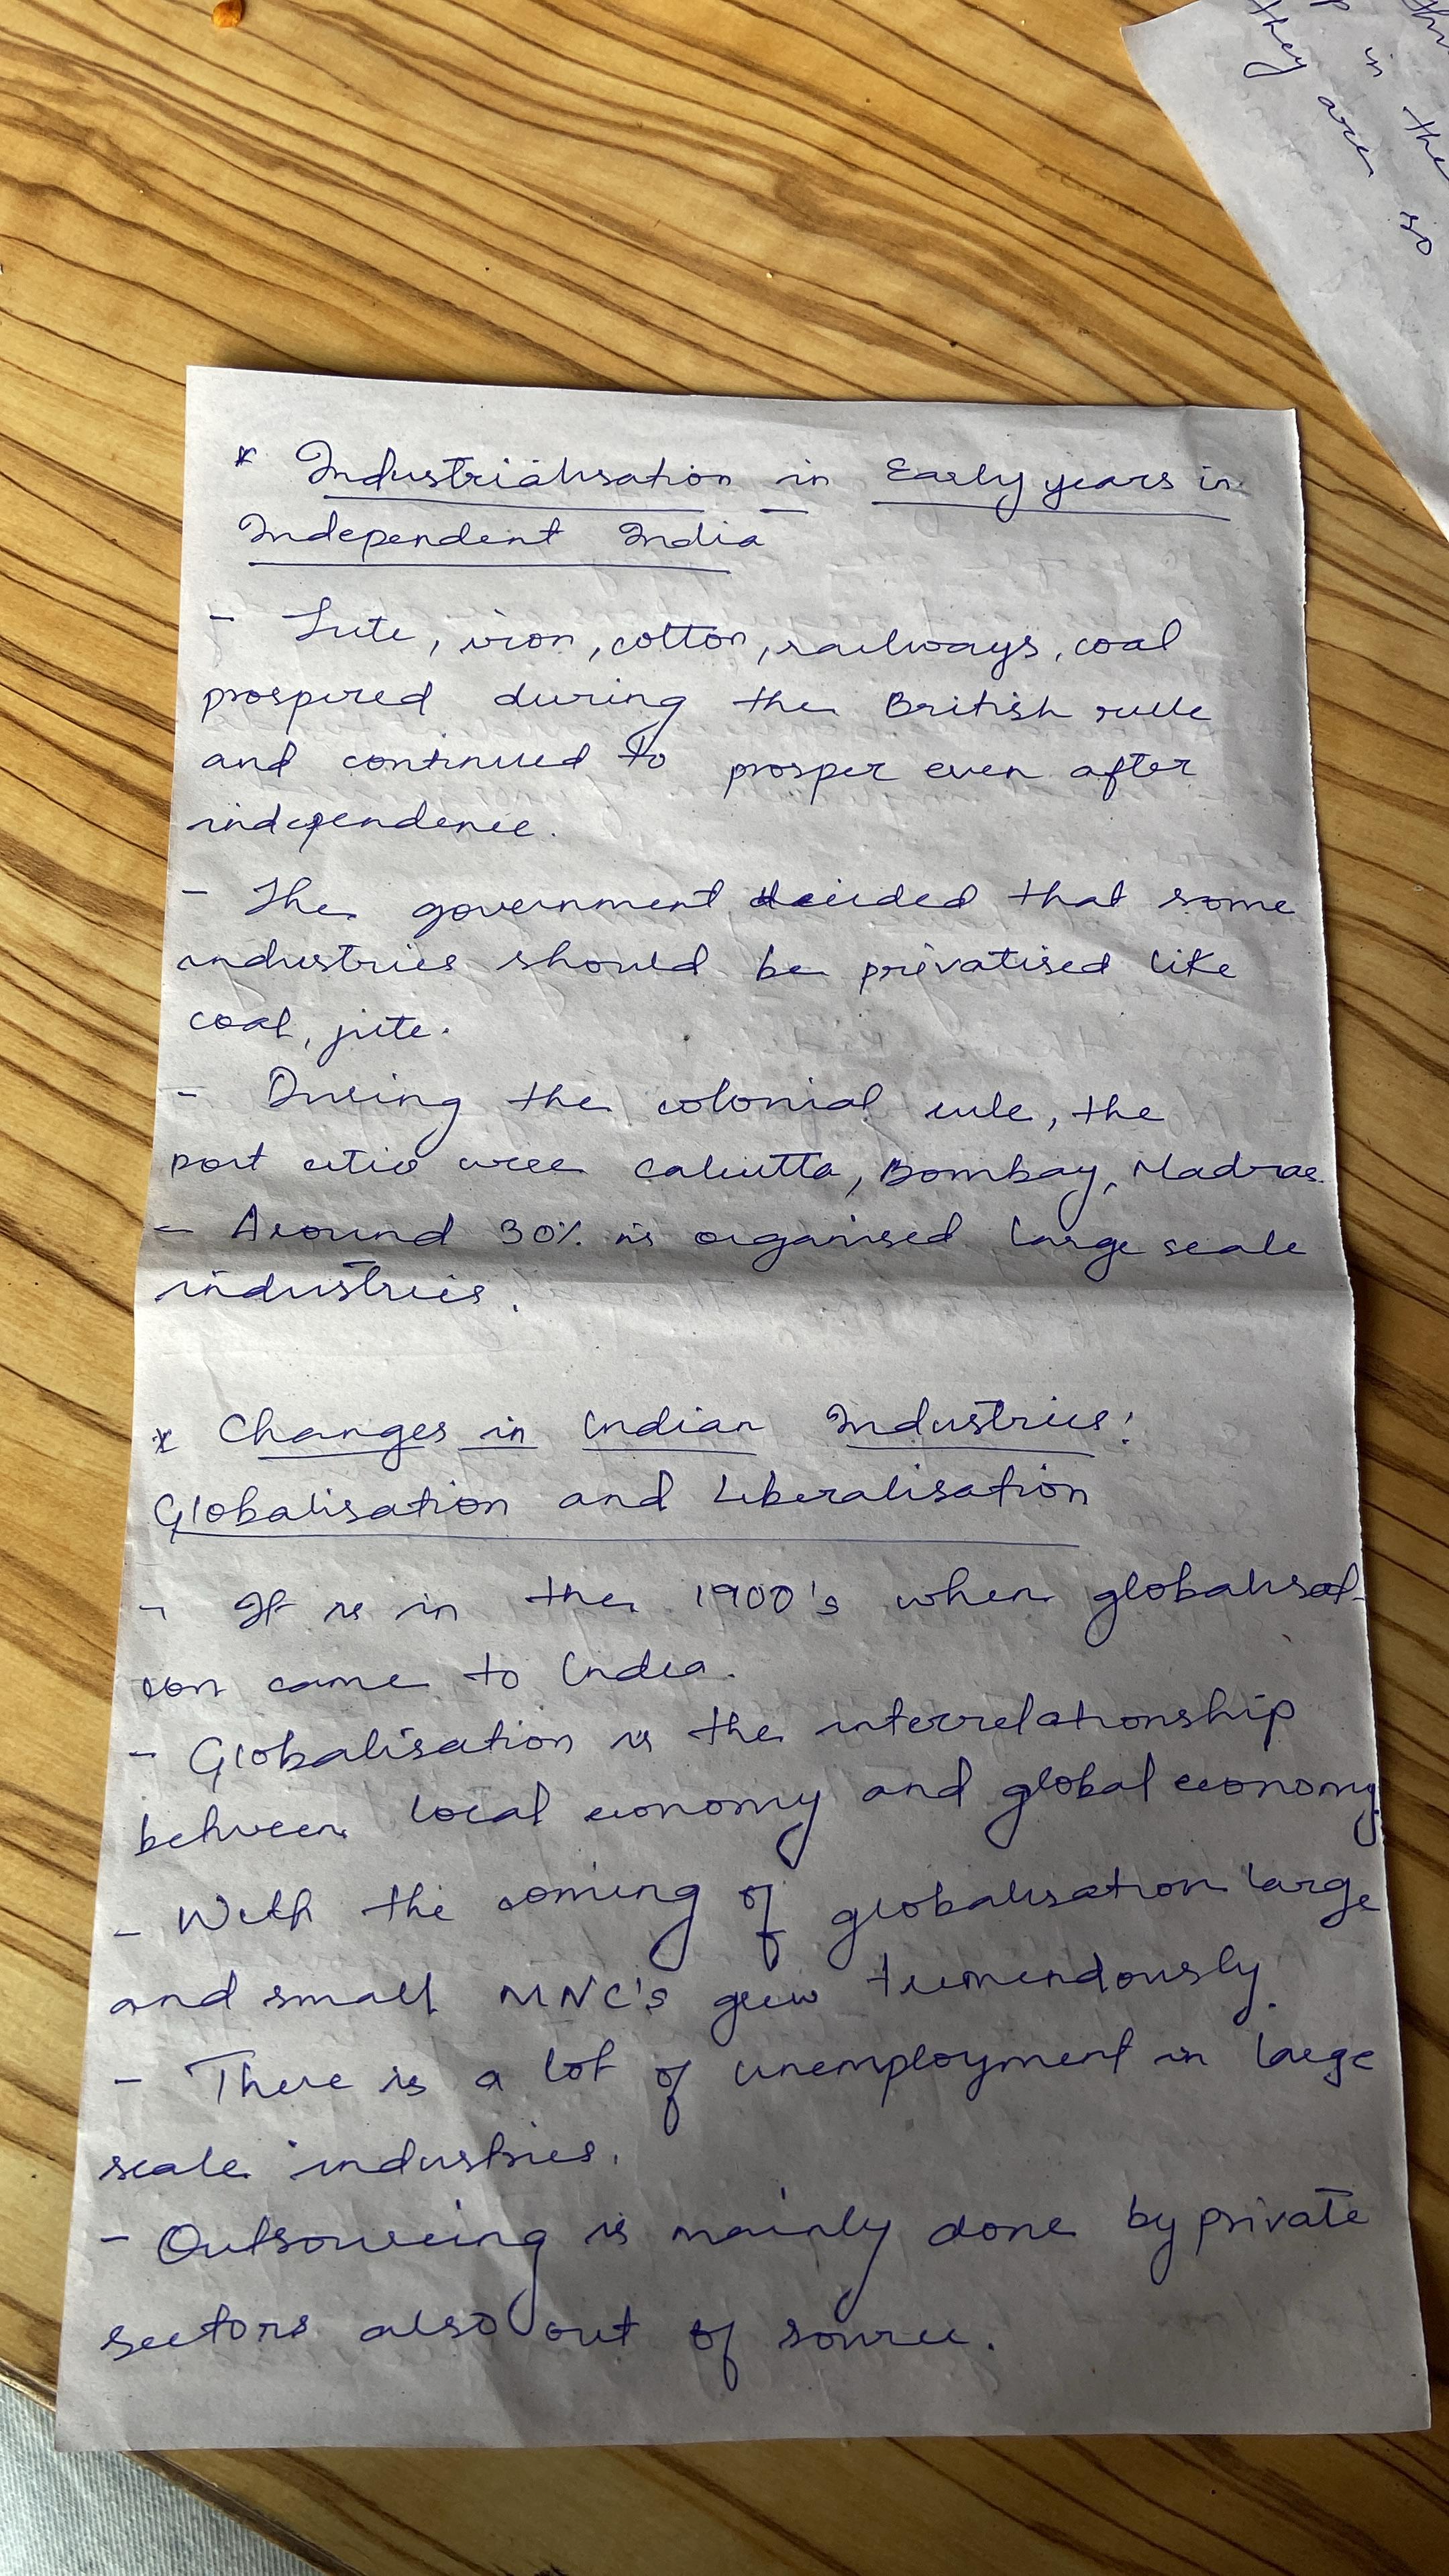 * Industrialisation in Early years in
Independent India
- Jute, iron, cotton, railways, coal
prospered during the British rule
and continued to prosper even after
independence.
- The government decided that some
industries should be privatised like
coal, jute.
- During the colonial rule, the
port cities were Calcutta, Bombay, Madras.
- Around 30% is organised large scale
industries.
* Changes in Indian Industries:
Globalisation and Liberalisation
- It is in the 1900's when globalisat-
ion came to India.
- Globalisation is the interrelationship
between local economy and global economy.
- With the coming of globalisation large
and small MNC's grew tremendously.
- There is a lot of unemployment in large
scale industries.
- Outsourcing is mainly done by private
sectors also out of source.
they are so
in the